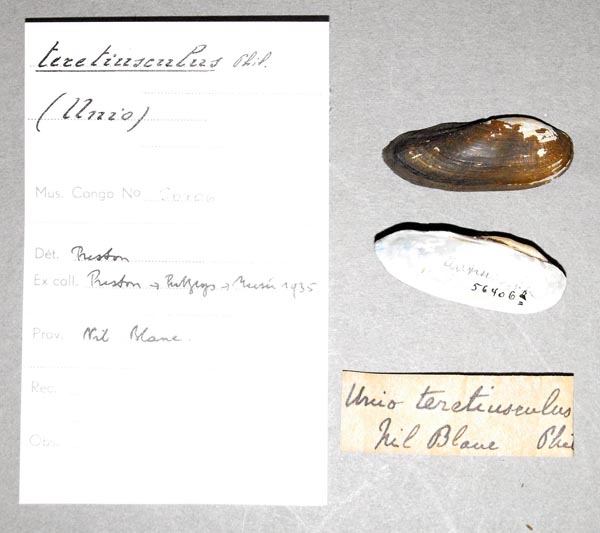 teretiusculus Phil.
(Unio)
Mus. Congo No
Dét. Preston
Ex coll. Preston → Putzeys → Musée 1935
Prov. Nil Blanc.
Rec.
Obs.
56406
Unio teretiusculus
Nil Blanc Phil